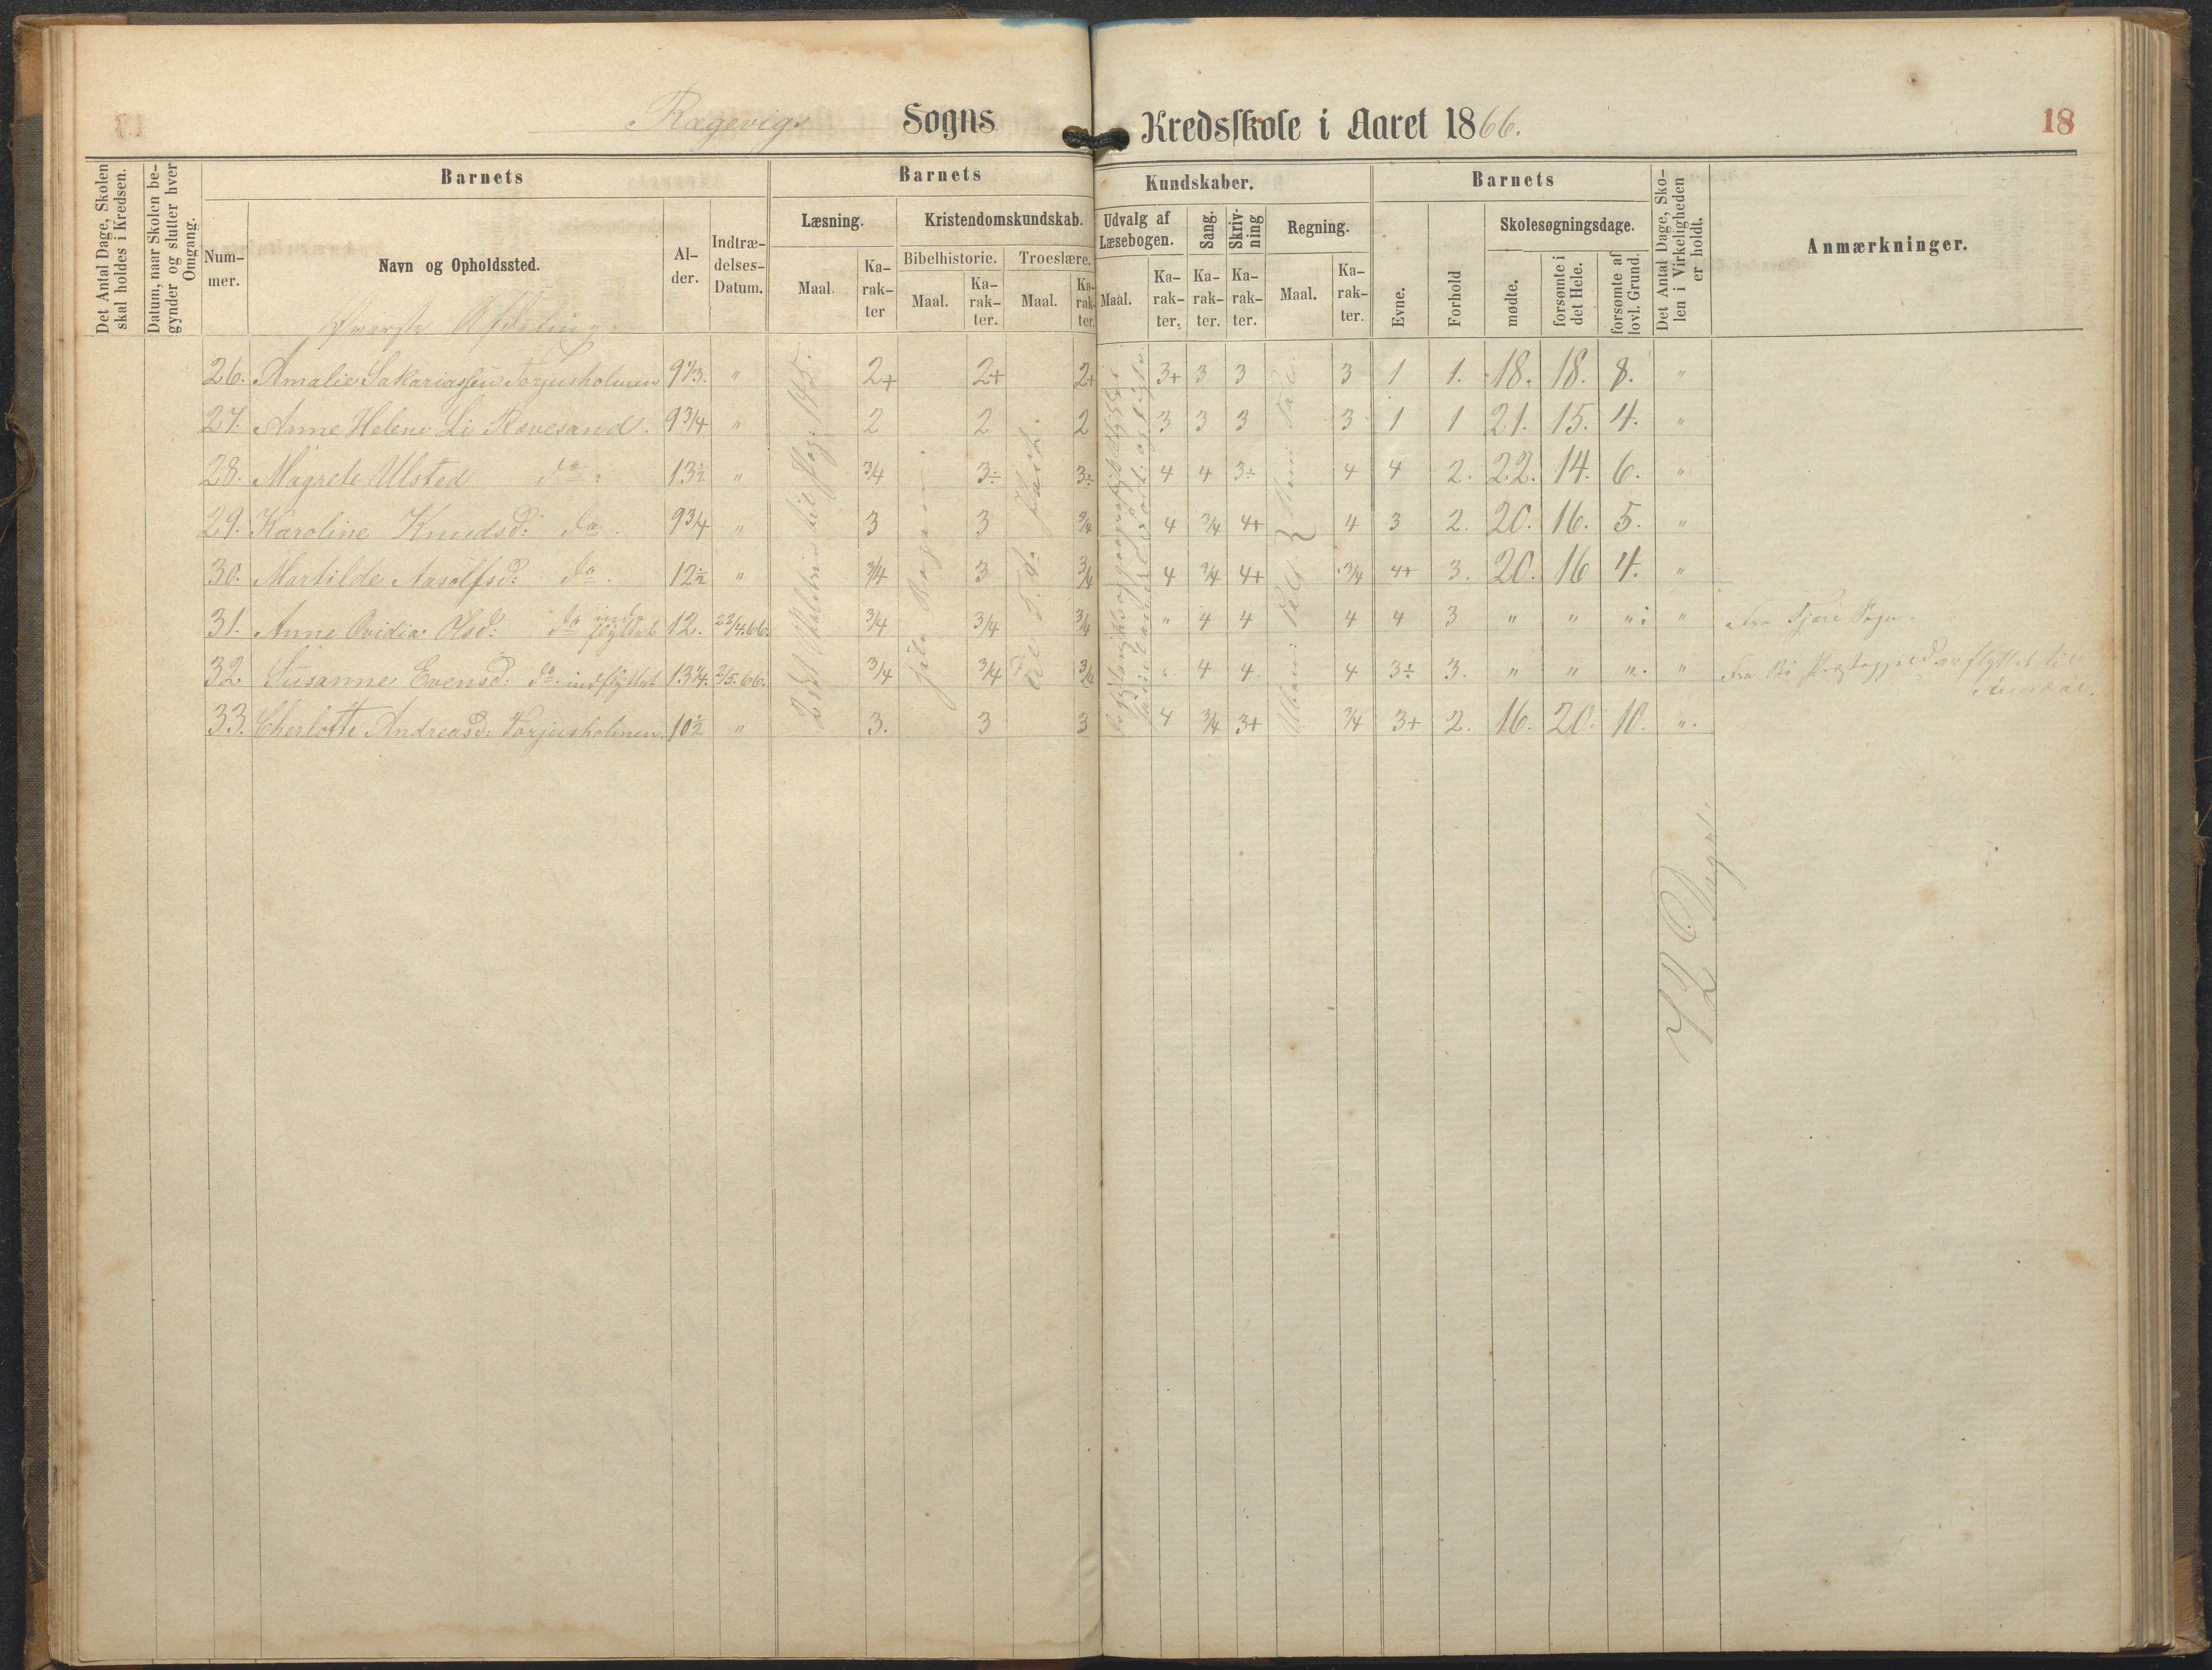 Rægevigs Sogns Kredsskole i Aaret 1866. 18
Det Antal Dage, Skolen skal holdes i Kredsen.
Datum, naar Skolen begynder og slutter hver Omgang.
Barnets
Barnets
Kundskaber.
Barnets
Det Antal Dage, Skolen i Virkeligheden er holdt.
Anmærkninger.
Nummer.
Navn og Opholdssted.
Alder.
Indtrædelses-Datum.
Læsning.
Kristendomskundskab.
Udvalg af Læsebogen.
Sang.
Skrivning
Regning.
Skolesøgningsdage.
Bibelhistorie. Troeslære.
Maal. Karakter Maal. Karakter. Maal. Karakter. Maal. Karakter. Karakter. Karakter. Maal. Karakter. Evne. Forhold mødte. forsømte i det Hele. forsømte af lovl. Grund.
Øverste Afdeling
26. Amalie Sakariassen Torjusholmen 9 1/3. " 2+ 2+ 2+ 3+ 3 3 3 1 1. 18. 18. 8. "
27. Anne Helene Li Rævesand. 9 3/4 " 2 2 2 3 3 3 3 1 1 21. 15. 4. "
28. Magrete Ulsted do: 13 1/2 " 3/4 3÷ 3÷ 4 4 3÷ 4 4 2. 22. 14. 6. "
29. Karoline Knudsd: do. 9 3/4 " 3 3 3/4 4 3/4 4+ 4 3 2. 20. 16. 5. "
30. Martilde Aasolfsd: do. 12 1/2 " 3/4 3 3/4 4 3/4 4+ 3/4 4+ 3. 20. 16 4. "
31. Anne Ovidia Olsd: do indflyttet 12. 22/4.66. 3/4 3/4 3/4 " 4 4 4 4 3 " " " " Fra Sogn.
32. Susanne Evensd: do indflyttet 13 1/4. 2/5.66. 3/4 3/4 3/4 " 4 4 4 3÷ 3. " " " " Fra Præstegjeld er flyttet til
33. Cherlotte Andreasd: Torjusholmen. 10 1/2 " 3. 3 3 4 3/4 3+ 3/4 3+ 2. 16. 20. 10. "